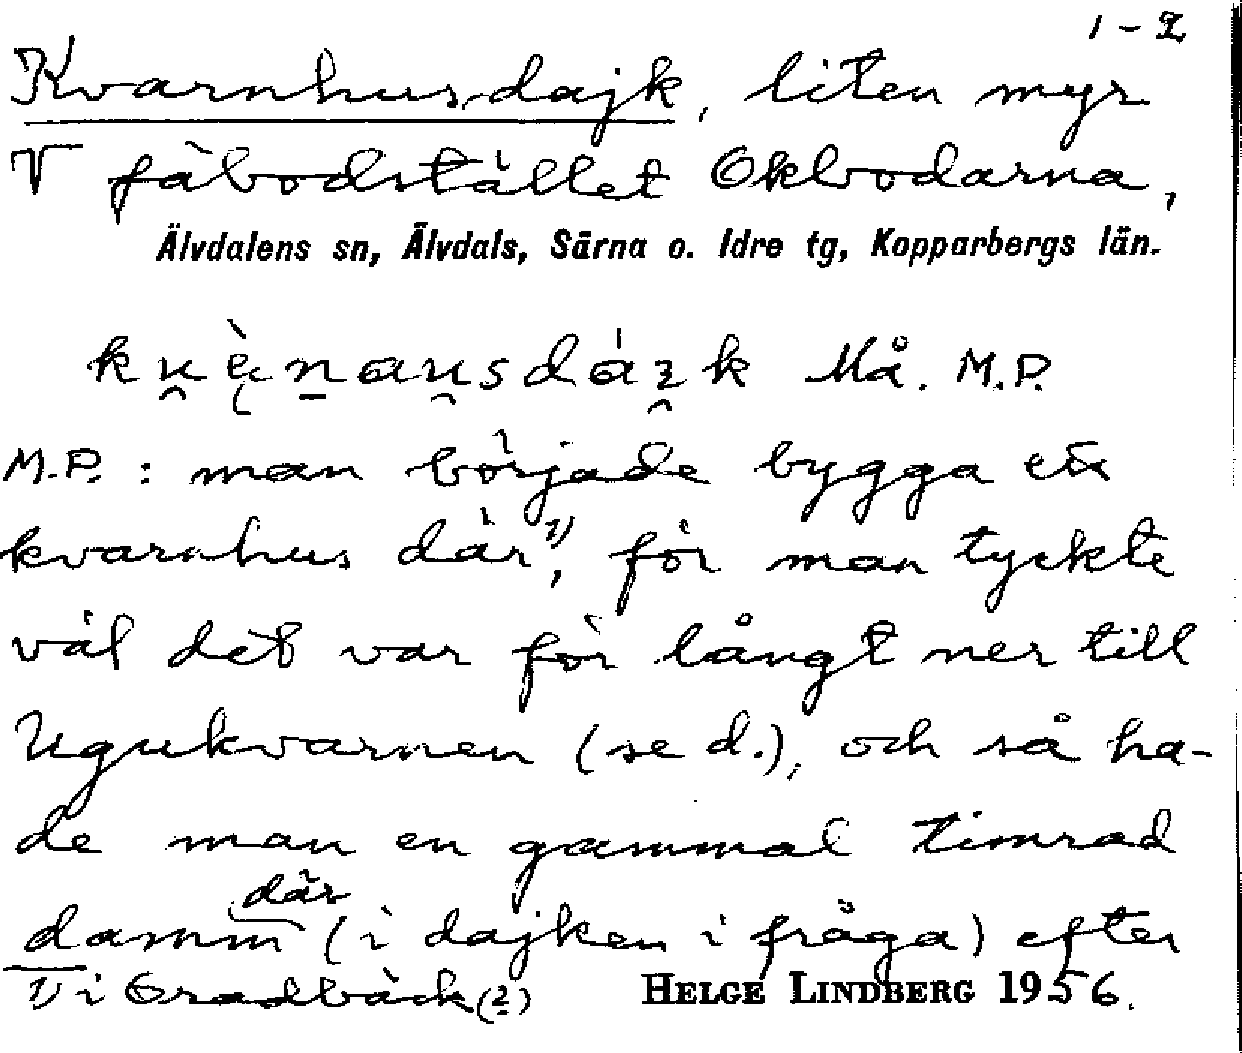 1-2
Kvarnhusdajk, liten myr
V fäbodstället Okbodarna,
Älvdalens sn, Älvdals, Särna o. Idre tg, Kopparbergs län.
Må. M.P.
M.P.: man började bygga ett
kvarnhus där¹⁾, för man tyckte
väl det var för långt ner till
Ugukvarnen (se d.), och så ha-
de man en gammal timrad
damm där (i dajken i fråga) efter
1) i Oradbäck (?)
HELGE LINDBERG 1956.